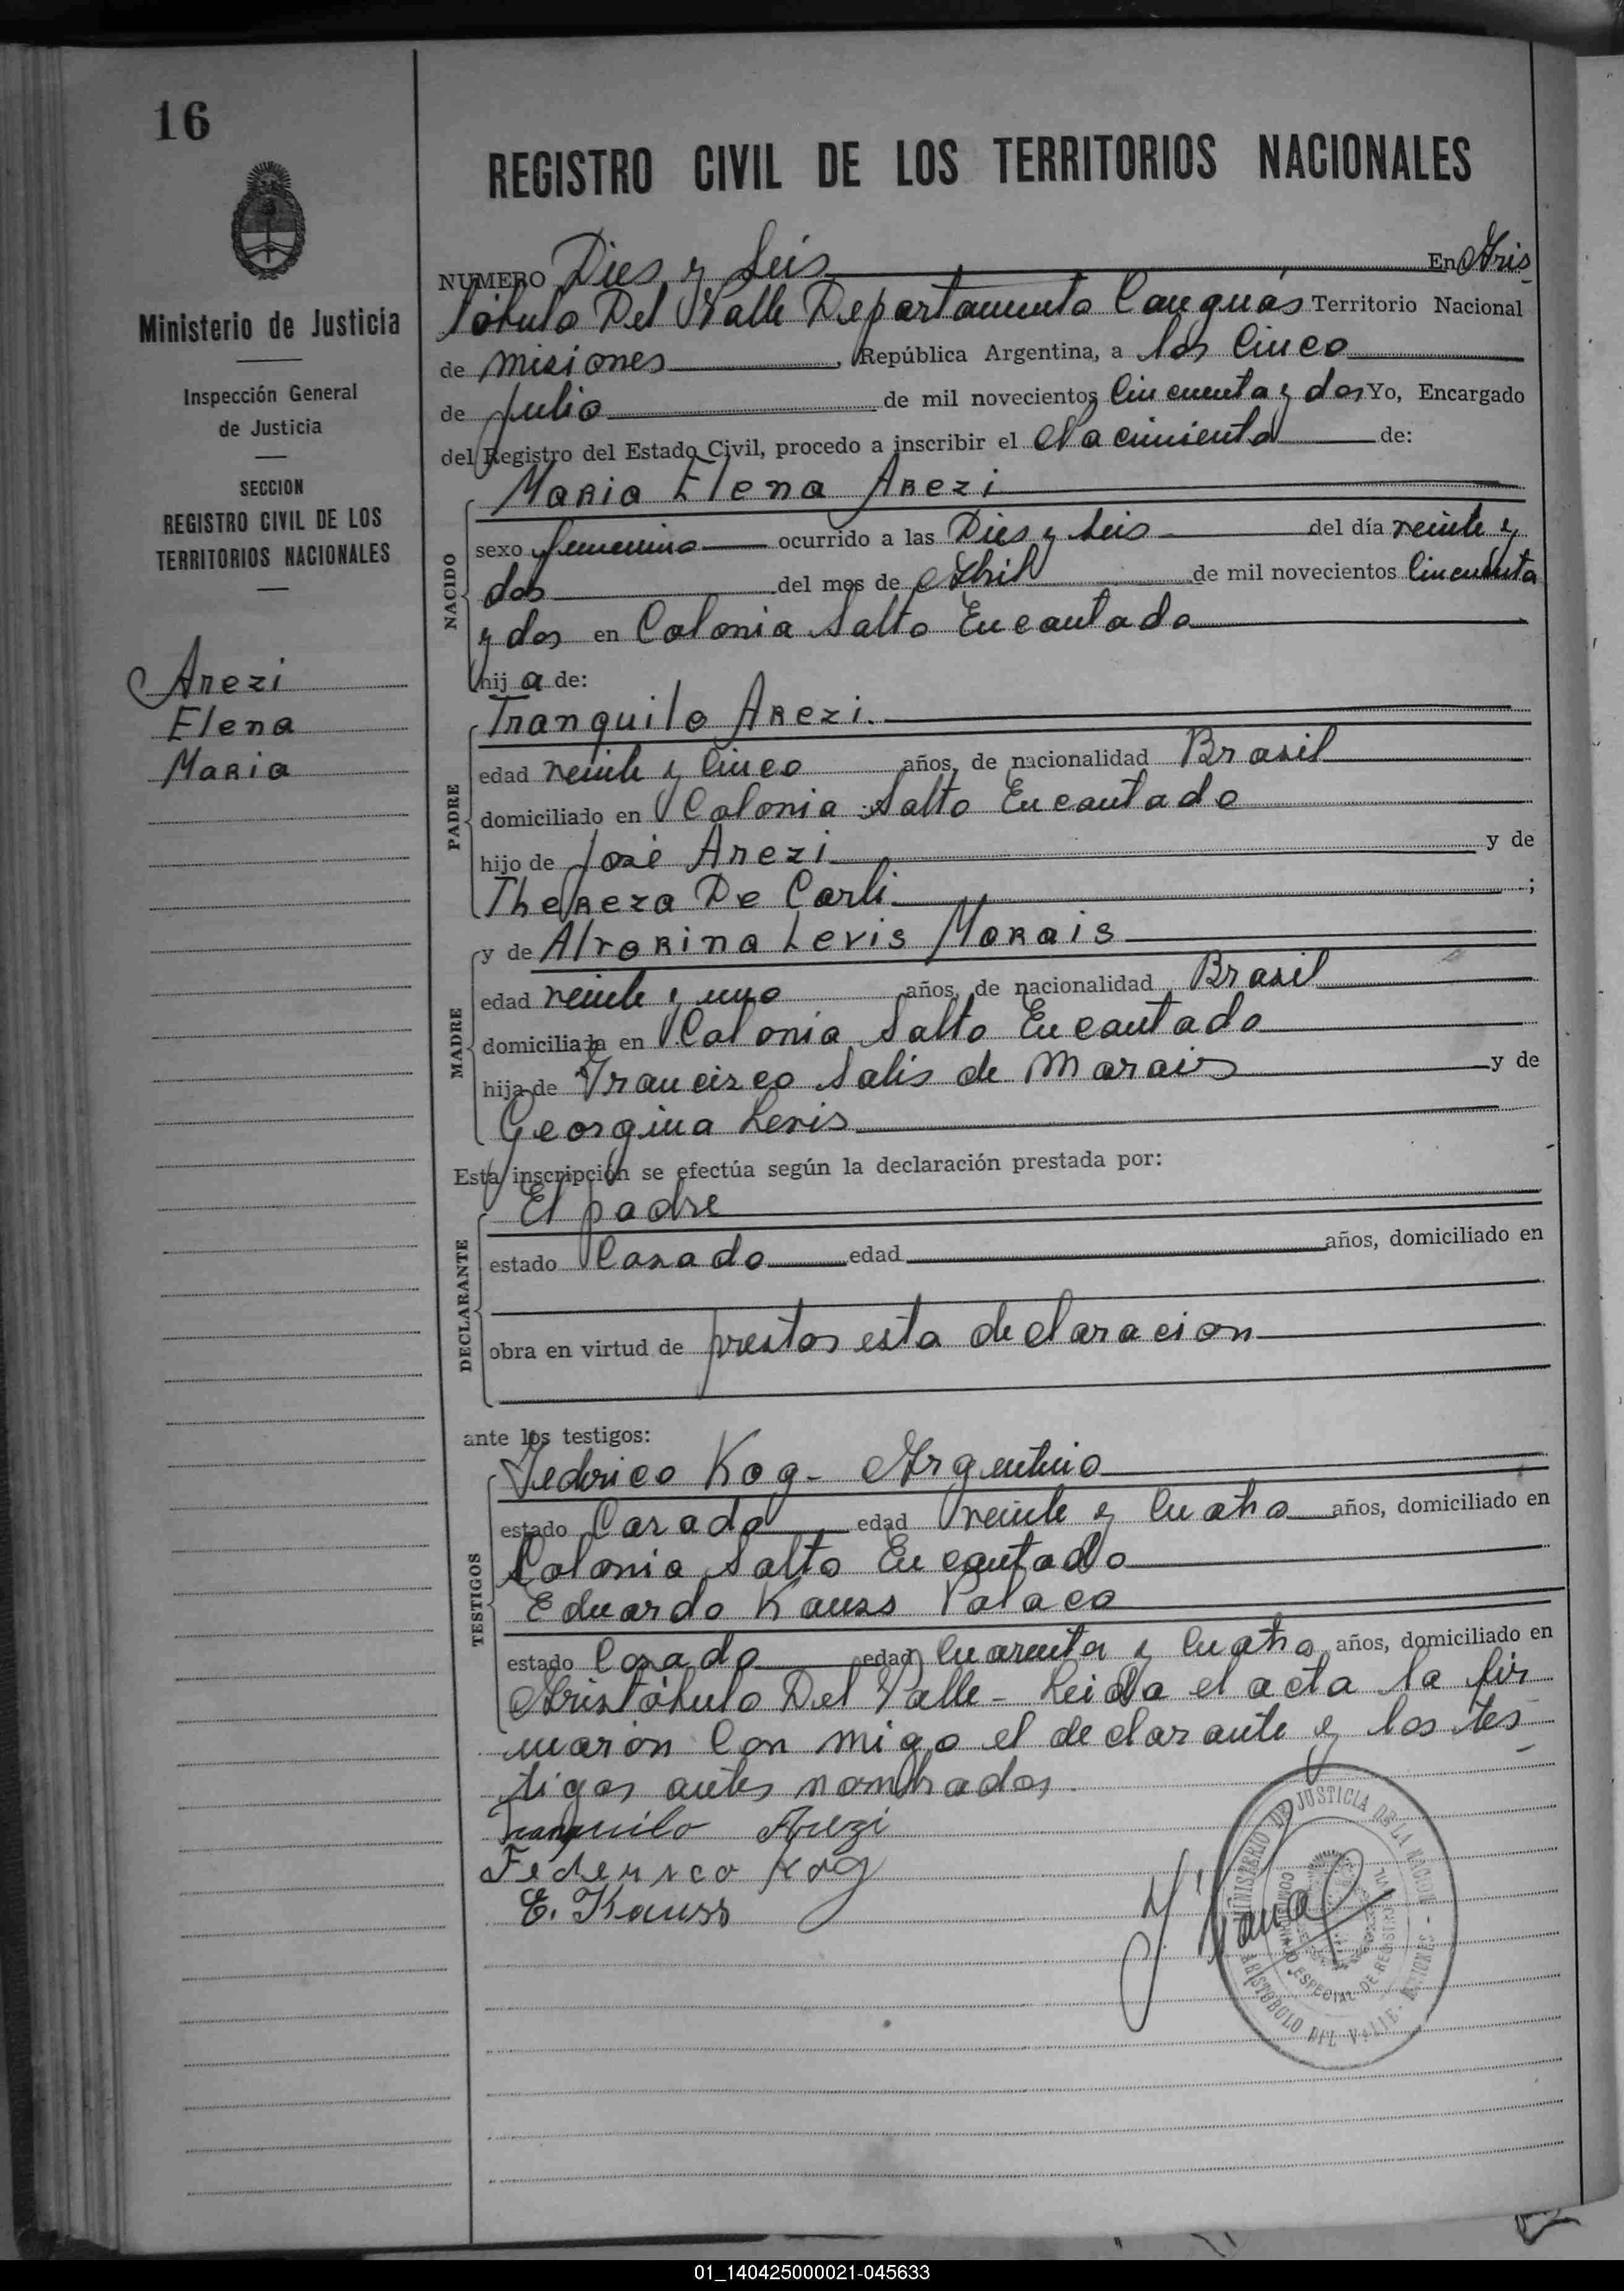 16
Ministerio de Justicia
Inspección General
de Justicia
SECCION
REGISTRO CIVIL DE LOS
TERRITORIOS NACIONALES
Arezi
Elena
Maria
REGISTRO CIVIL DE LOS TERRITORIOS NACIONALES
NUMERO Dies y Seis En Aris
tóbulo Del Valle Departamento Cainguás Territorio Nacional
de misiones, República Argentina, a los Cinco
de julio de mil novecientos Cincuenta y dos Yo, Encargado
del Registro del Estado Civil, procedo a inscribir el Nacimiento de:
NACIDO
Maria Elena Arezi
sexo femenino ocurrido a las Dies y Seis del día veinte y
dos del mes de Abril de mil novecientos Cincuenta
y dos en Colonia Salto Encantado
hij a de:
PADRE
Tranquilo Arezi.
edad veinte y Cinco años, de nacionalidad Brasil
domiciliado en Colonia Salto Encantado
hijo de José Arezi y de
Thereza De Carli ;
MADRE
y de Alvorina Levis Morais
edad veinte y uno años, de nacionalidad Brasil
domiciliada en Colonia Salto Encantado
hija de Francisco Salis de Morais y de
Georgina Levis
Esta inscripción se efectúa según la declaración prestada por:
DECLARANTE
El padre
estado Casado edad años, domiciliado en
obra en virtud de prestar esta declaracion
ante los testigos:
TESTIGOS
Federico Kog - Argentino
estado Casado edad veinte y Cuatro años, domiciliado en
Colonia Salto Encantado
Eduardo Kauss Polaco
estado Casado edad Cuarenta y Cuatro años, domiciliado en
Aristóbulo Del Valle - Leida el acta la fir
maron Con migo el declarante y los tes
tigos antes nombrados.
Tranquilo Arezi
Federico Kog
E. Kauss
MINISTERIO DE JUSTICIA DE LA NACION
COMISARIATO ESPECIAL DE REGISTRO CIVIL
ARISTOBOLO DEL VALLE - MISIONES -
01_140425000021-045633